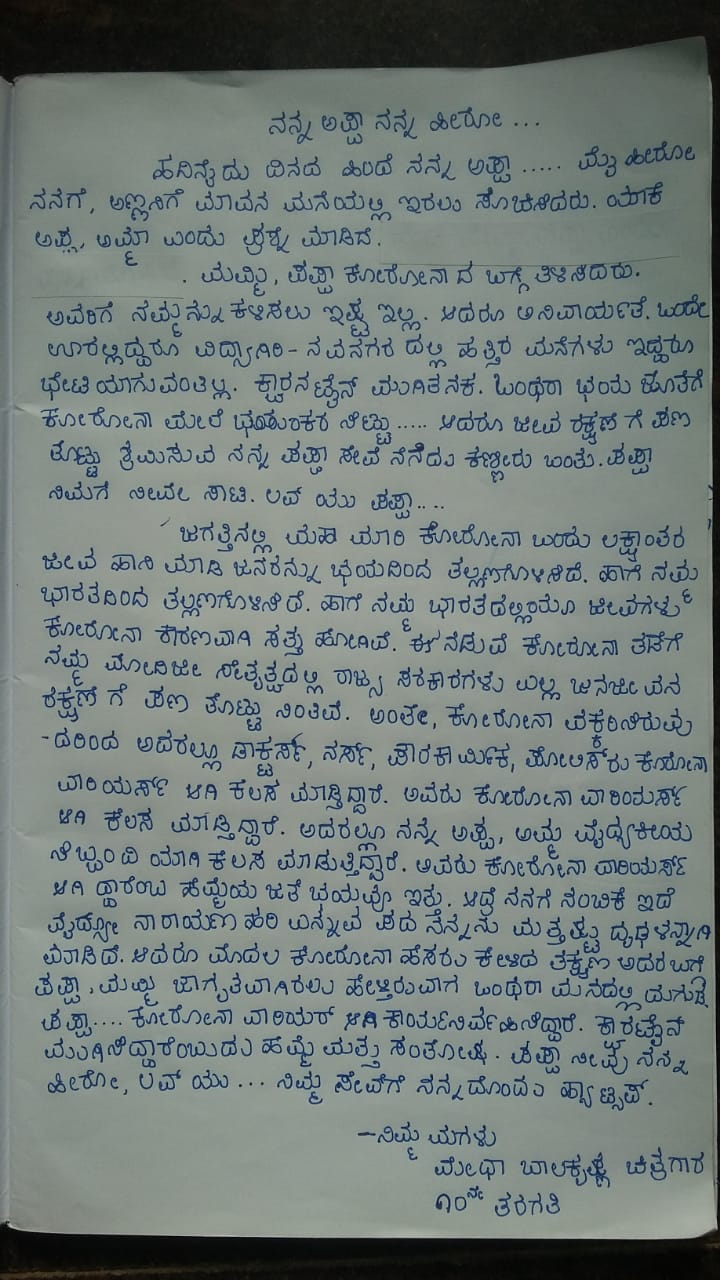 ನನ್ನ ಅಪ್ಪಾ ನನ್ನ ಹೀರೋ ...
ಹದಿನೈದು ದಿನದ ಹಿಂದೆ ನನ್ನ ಅಪ್ಪಾ ..... ಮೈ ಹೀರೋ
ನನಗೆ, ಅಣ್ಣನಿಗೆ ಮಾವನ ಮನೆಯಲ್ಲಿ ಇರಲು ಸೂಚಿಸಿದರು. ಯಾಕೆ
ಅಪ್ಪಾ, ಅಮ್ಮಾ ಎಂದು ಪ್ರಶ್ನೆ ಮಾಡಿದೆ.
. ಮಮ್ಮಿ, ಪಪ್ಪಾ ಕೋರೋನಾದ ಬಗ್ಗೆ ತಿಳಿಸಿದರು.
ಅವರಿಗೆ ನಮ್ಮನ್ನು ಕಳಿಸಲು ಇಷ್ಟ ಇಲ್ಲ. ಆದರೂ ಅನಿವಾರ್ಯತೆ. ಒಂದೇ
ಊರಲ್ಲಿದ್ದರೂ ವಿದ್ಯಾಗಿರಿ - ನವನಗರ ದಲ್ಲಿ ಹತ್ತಿರ ಮನೆಗಳು ಇದ್ದರೂ
ಭೇಟಿಯಾಗುವಂತಿಲ್ಲ. ಕ್ವಾರನಟೈನ್ ಮುಗಿತನಕ. ಒಂಥರಾ ಭಯ ಜೊತೆಗೆ
ಕೋರೋನಾ ಮೇಲೆ ಭಯಂಕರ ಸಿಟ್ಟು ..... ಆದರೂ ಜೀವ ರಕ್ಷಣೆ ಗೆ ಪಣ
ತೊಟ್ಟು ಶ್ರಮಿಸುವ ನನ್ನ ಪಪ್ಪಾ ಸೇವೆ ನೆನೆದು ಕಣ್ಣೀರು ಬಂತು. ಪಪ್ಪಾ
ನಿಮಗೆ ನೀವೇ ಸಾಟಿ. ಲವ್ ಯು ಪಪ್ಪಾ ....
ಜಗತ್ತಿನಲ್ಲಿ ಮಹಾ ಮಾರಿ ಕೋರೋನಾ ಬಂದು ಲಕ್ಷಾಂತರ
ಜೀವ ಹಾನಿ ಮಾಡಿ ಜನರನ್ನು ಭಯದಿಂದ ತಲ್ಲಣಗೊಳಿಸಿದೆ. ಹಾಗೆ ನಮ್ಮ
ಭಾರತದಿಂದ ತಲ್ಲಣಗೊಳಿಸಿದೆ. ಹಾಗೆ ನಮ್ಮ ಭಾರತದಲ್ಲಿಯೂ ಜೀವಗಳು
ಕೋರೋನಾ ಕಾರಣವಾಗಿ ಸತ್ತು ಹೋಗಿವೆ. ಈ ನಡುವೆ ಕೋರೋನಾ ತಡೆಗೆ
ನಮ್ಮ ಮೋದಿಜೀ ನೇತೃತ್ವದಲ್ಲಿ ರಾಜ್ಯ ಸರಕಾರಗಳು ಎಲ್ಲ ಜನಜೀವನ
ರಕ್ಷಣೆ ಗೆ ಪಣ ತೊಟ್ಟು ನಿಂತಿವೆ. ಅಂತೇ, ಕೋರೋನಾ ವಕ್ಕರಿಸಿರುವು
-ದರಿಂದ ಅದರಲ್ಲೂ ಡಾಕ್ಟರ್ಸ್, ನರ್ಸ್, ಪೌರಕಾರ್ಮಿಕ, ಪೋಲಿಸ್‌ರು ಕೊರೋನಾ
ವಾರಿಯರ್ಸ್ ಆಗಿ ಕೆಲಸ ಮಾಡ್ತಿದ್ದಾರೆ. ಅವರು ಕೋರೋನಾ ವಾರಿಯರ್ಸ್
ಆಗಿ ಕೆಲಸ ಮಾಡ್ತಿದ್ದಾರೆ. ಅದರಲ್ಲೂ ನನ್ನ ಅಪ್ಪ, ಅಮ್ಮ ವೈದ್ಯಕೀಯ
ಸಿಬ್ಬಂದಿ ಯಾಗಿ ಕೆಲಸ ಮಾಡುತ್ತಿದ್ದಾರೆ. ಅವರು ಕೋರೋನಾ ವಾರಿಯರ್ಸ್
ಆಗಿ ದ್ದಾರೆಂಬ ಹೆಮ್ಮೆಯ ಜತೆ ಭಯವೂ ಇತ್ತು. ಆದ್ರೆ ನನಗೆ ನಂಬಿಕೆ ಇದೆ
ವೈದ್ಯೋ ನಾರಾಯಣ ಹರಿ ಎನ್ನುವ ಪದ ನನ್ನನು ಮತ್ತಷ್ಟು ದೃಢಳನ್ನಾಗಿ
ಮಾಡಿದೆ. ಆದರೂ ಮೊದಲ ಕೋರೋನಾ ಹೆಸರು ಕೇಳಿದ ತಕ್ಷಣ ಅದರ ಬಗ್ಗೆ
ಪಪ್ಪಾ, ಮಮ್ಮಿ ಜಾಗೃತವಾಗಿರಲು ಹೇಳ್ತಿರುವಾಗ ಒಂಥರಾ ಮನದಲ್ಲಿ
ಪಪ್ಪಾ .... ಕೋರೋನಾ ವಾರಿಯರ್ ಆಗಿ ಕಾರ್ಯನಿರ್ವಹಿಸಿದ್ದಾರೆ. ಕ್ವಾರಟೈನ್
ಮುಗಿಸಿದ್ದಾರೆಂಬುದು ಹೆಮ್ಮೆ ಮತ್ತು ಸಂತೋಷ. ಪಪ್ಪಾ ನೀವು ನನ್ನ
ಹೀರೋ, ಲವ್ ಯು ... ನಿಮ್ಮ ಸೇವೆಗೆ ನನ್ನದೊಂದು ಹ್ಯಾಟ್ಸಪ್.
-ನಿಮ್ಮ ಮಗಳು
ಮೇಧಾ ಬಾಲಕೃಷ್ಣ ಚಿತ್ರಗಾರ
೧೦ನೇ ತರಗತಿ